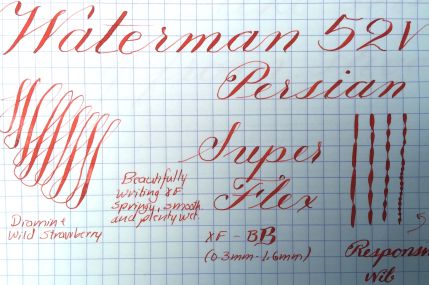 Waterman 52V
Persian
Super
Flex
Beautifully
writing XF.
springy, smooth
and plenty wet.
Diamine
Wild Strawberry
XF - BB
(0.3mm-1.6mm)
Responsiv
Nib